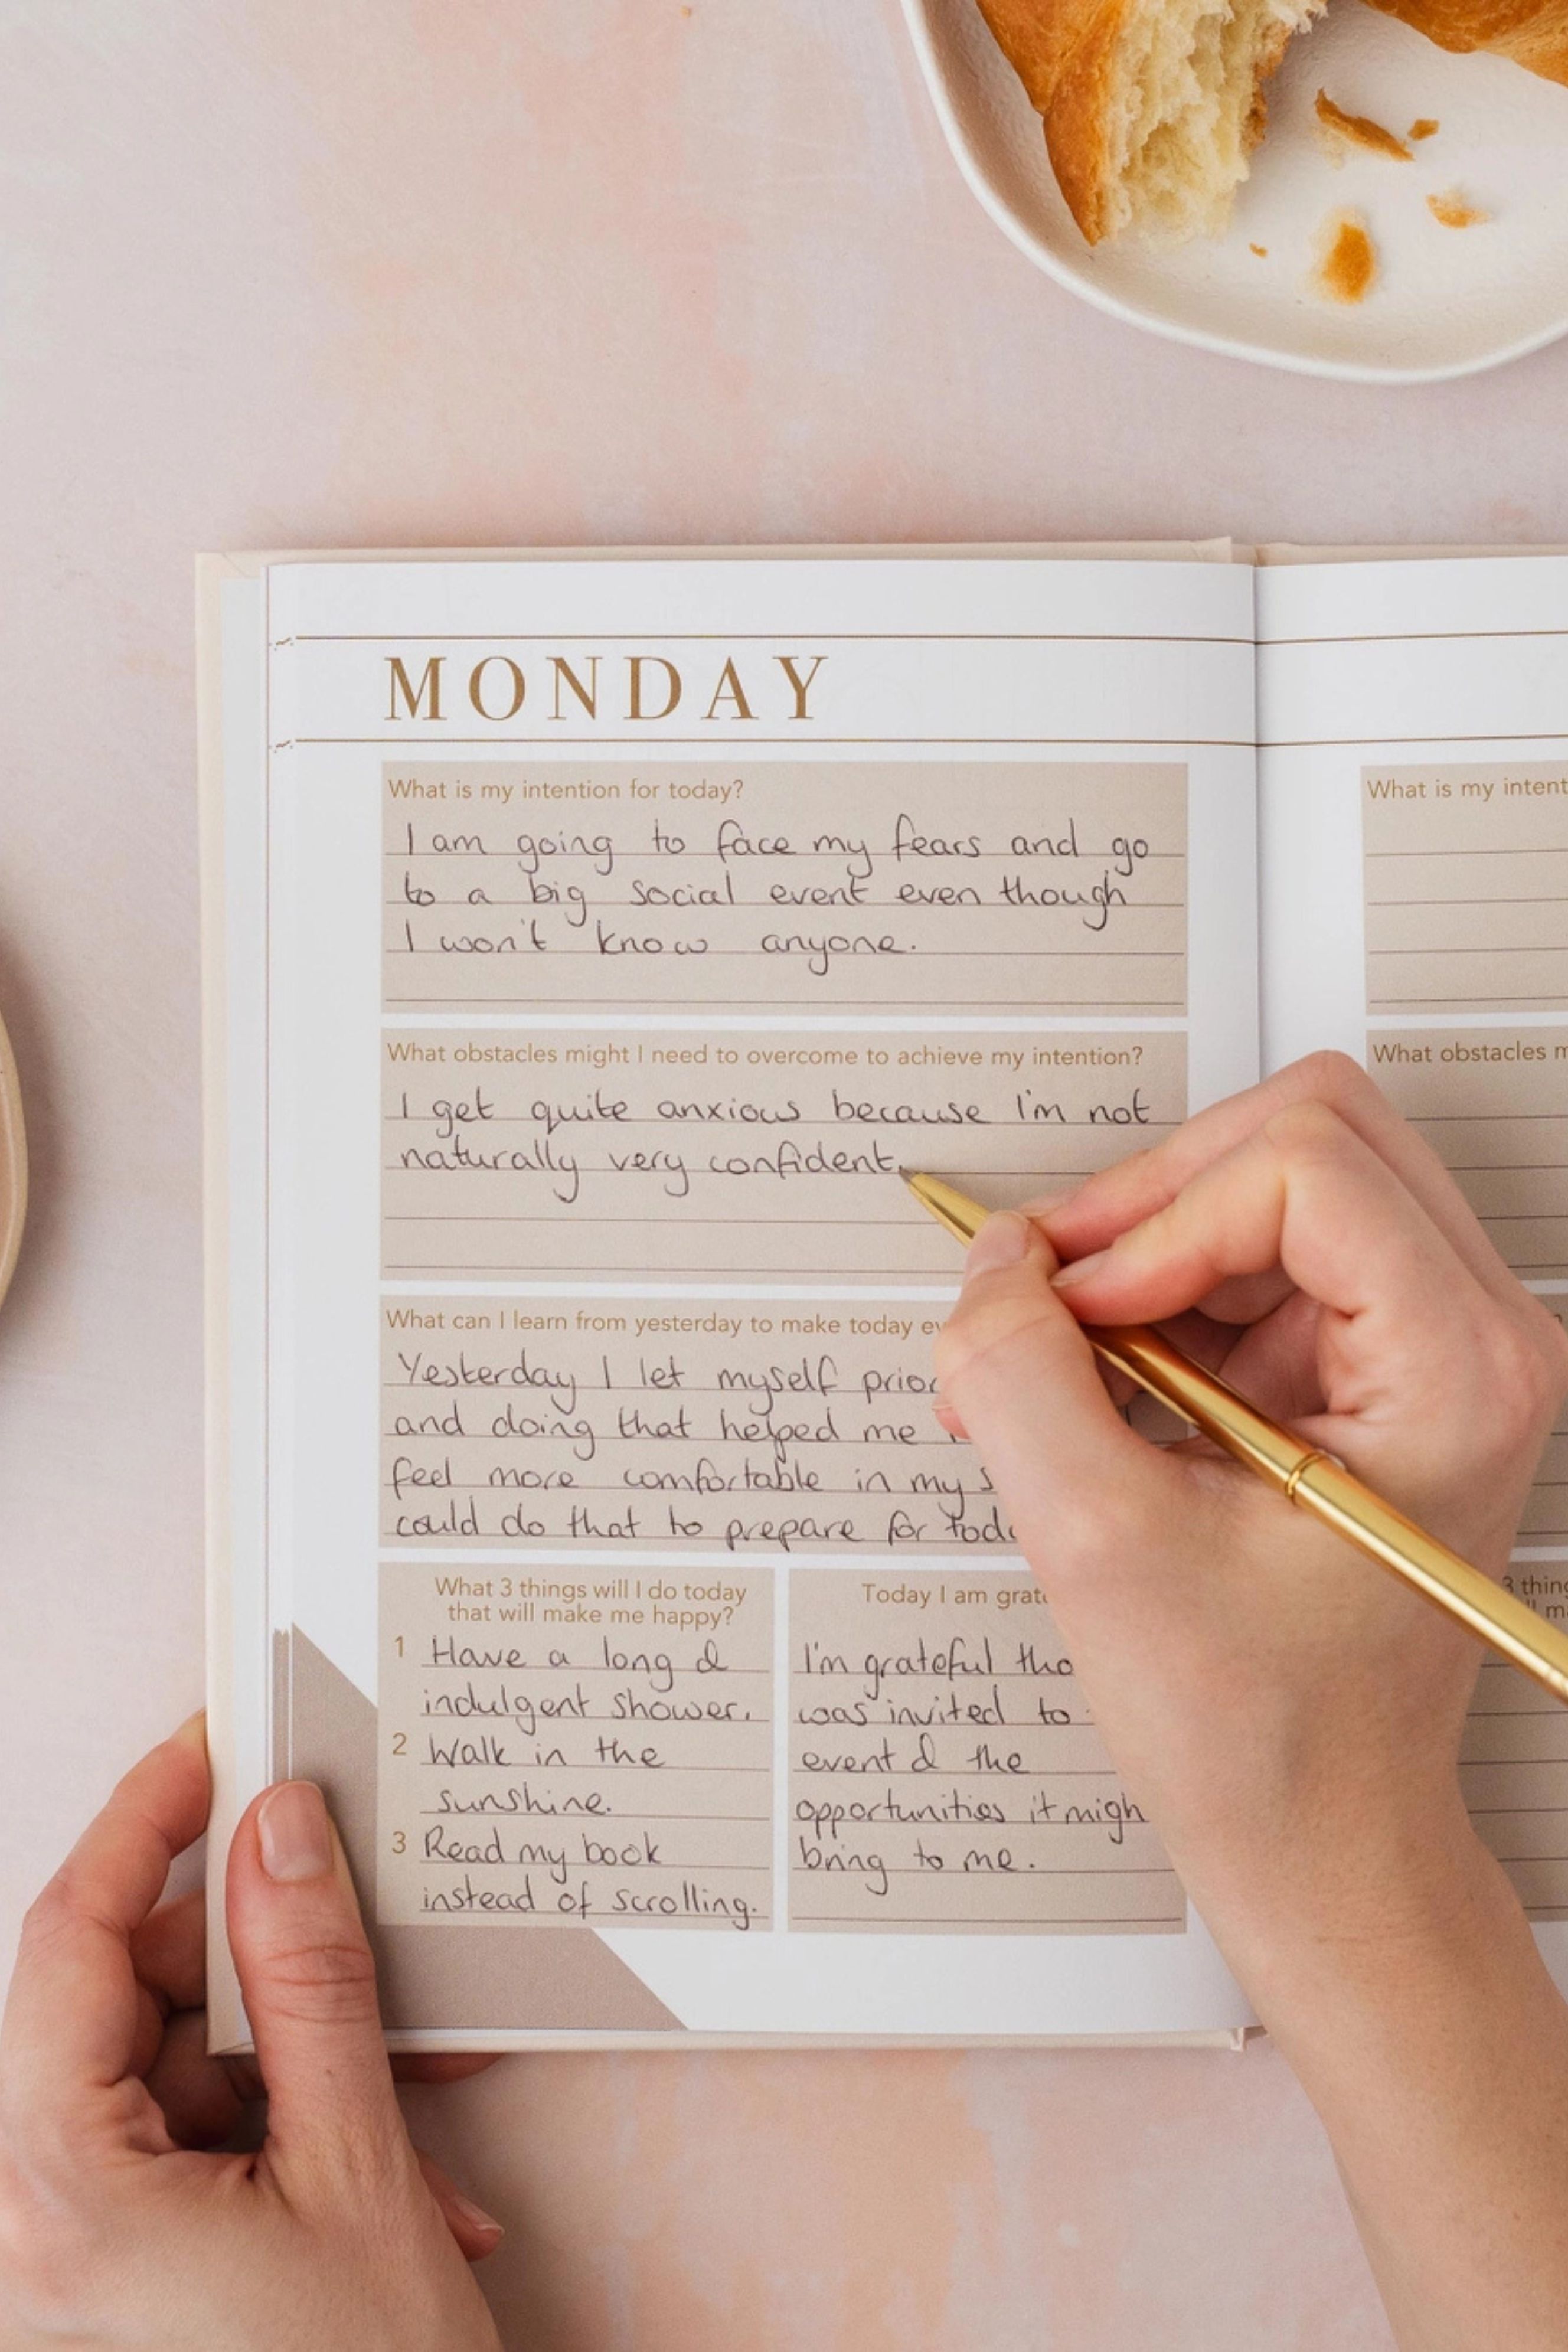 MONDAY
What is my intention for today?
I am going to face my fears and go
to a big social event even though
I won't know anyone.
What obstacles might I need to overcome to achieve my intention?
I get quite anxious because I'm not
naturally very confident.
What can I learn from yesterday to make today
Yesterday I let myself
and doing that helped me
feel more comfortable in my
could do that to prepare for
What 3 things will I do today
that will make me happy?
1 Have a long &
indulgent shower.
2 Walk in the
sunshine.
3 Read my book
instead of scrolling.
Today I am
I'm grateful
was invited to
event & the
opportunities it
bring to me.
What is my
What obstacles
3